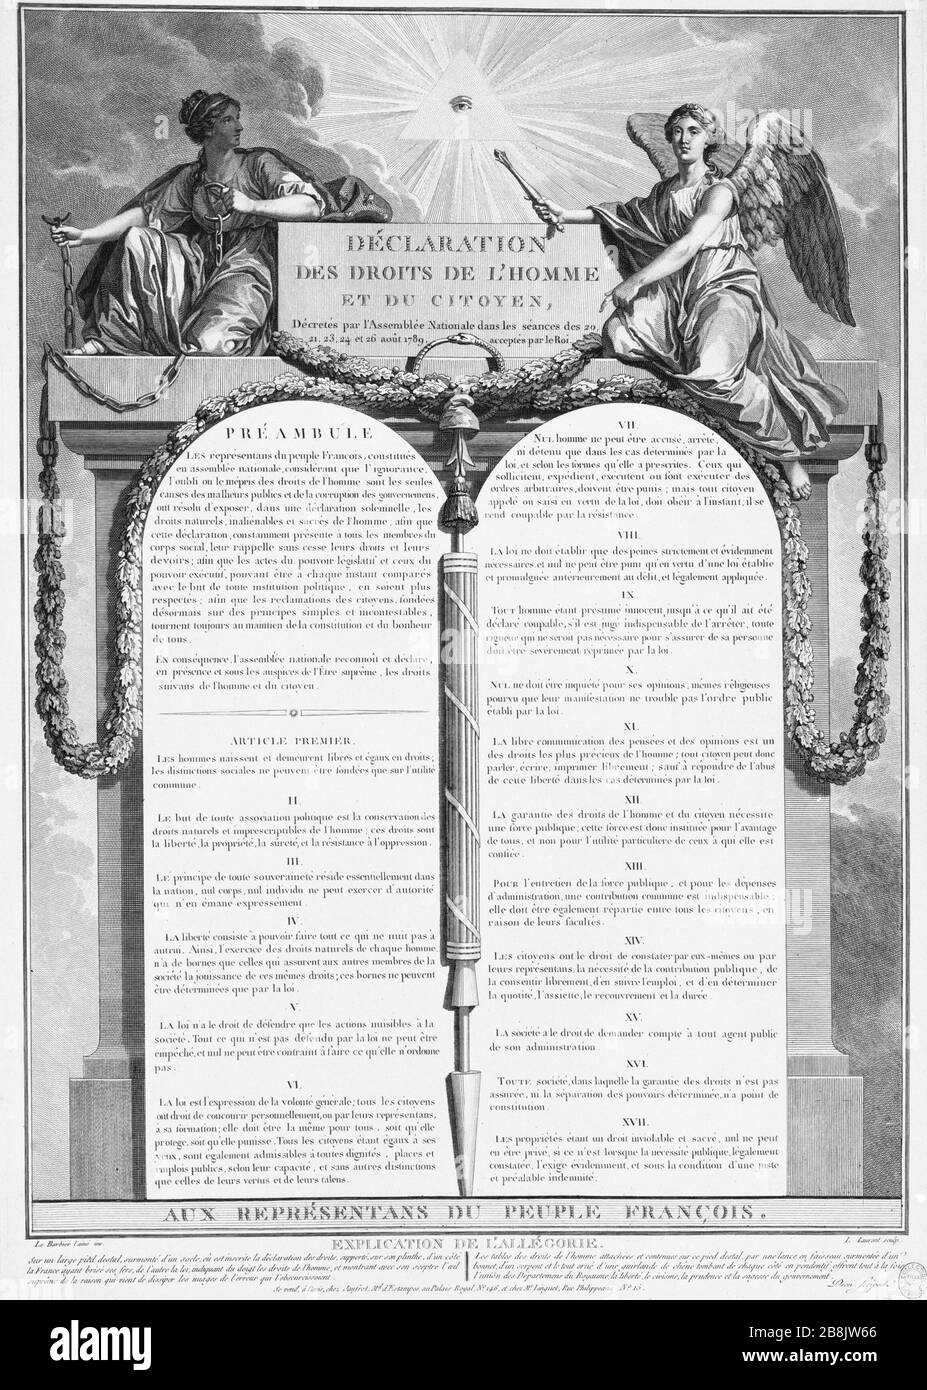 DÉCLARATION
DES DROITS DE L'HOMME
ET DU CITOYEN,
Décretés par l'Assemblée Nationale dans les séances des 20,
21, 23, 24 et 26 août 1789, acceptés par le Roi
PRÉAMBULE
LES représentans du peuple François, constitués
en assemblée nationale, considérant que l'ignorance,
l'oubli ou le mépris des droits de l'homme sont les seules
causes des malheurs publics et de la corruption des gouvernemens,
ont résolu d'exposer, dans une déclaration solemnelle, les
droits naturels, inaliénables et sacrés de l'homme; afin que
cette déclaration, constamment présente à tous les membres du
corps social, leur rappelle sans cesse leurs droits et leurs
devoirs; afin que les actes du pouvoir législatif et ceux du
pouvoir exécutif, pouvant être à chaque instant comparés
avec le but de toute institution politique, en soient plus
respectés; afin que les reclamations des citoyens, fondées
désormais sur des principes simples et incontestables,
tournent toujours au maintien de la constitution et du bonheur
de tous.
EN conséquence, l'assemblée nationale reconnoît et déclare,
en présence et sous les auspices de l'Être suprême, les droits
suivans de l'homme et du citoyen.
ARTICLE PREMIER.
LES hommes naissent et demeurent libres et égaux en droits;
les distinctions sociales ne peuvent être fondées que sur l'utilité
commune.
II.
LE but de toute association politique est la conservation des
droits naturels et imprescriptibles de l'homme; ces droits sont
la liberté, la propriété, la sûreté, et la résistance à l'oppression.
III.
LE principe de toute souveraineté réside essentiellement dans
la nation, nul corps, nul individu ne peut exercer d'autorité
qui n'en émane expressement.
IV.
LA liberté consiste à pouvoir faire tout ce qui ne nuit pas à
autrui. Ainsi, l'exercice des droits naturels de chaque homme,
n'a de bornes que celles qui assurent aux autres membres de la
société la jouissance de ces mêmes droits; ces bornes ne peuvent
être déterminées que par la loi.
V.
LA loi n'a le droit de défendre que les actions nuisibles à la
société. Tout ce qui n'est pas défendu par la loi ne peut être
empêché, et nul ne peut être contraint à faire ce qu'elle n'ordonne
pas.
VI.
LA loi est l'expression de la volonté générale; tous les citoyens
ont droit de concourir personnellement, ou par leurs représentans,
à sa formation; elle doit être la même pour tous, soit qu'elle
protege, soit qu'elle punisse. Tous les citoyens étant égaux à ses
yeux, sont également admissibles à toutes dignités, places et
emplois publics, selon leur capacité, et sans autres distinctions
que celles de leurs vertus et de leurs talens.
VII.
NUL homme ne peut être accusé, arrêté,
ni détenu que dans les cas déterminés par la
loi, et selon les formes qu'elle a prescrites. Ceux qui
sollicitent, expédient, exécutent ou font exécuter des
ordres arbitraires, doivent être punis; mais tout citoyen
appelé ou saisi en vertu de la loi, doit obéir à l'instant; il se
rend coupable par la résistance.
VIII.
LA loi ne doit établir que des peines strictement et évidemment
nécessaires et nul ne peut être puni qu'en vertu d'une loi établie
et promulguée antérieurement au délit, et légalement appliquée.
IX.
TOUT homme étant présumé innocent jusqu'à ce qu'il ait été
déclaré coupable, s'il est jugé indispensable de l'arrêter, toute
rigueur qui ne seroit pas nécessaire pour s'assurer de sa personne
doit être sévèrement réprimée par la loi.
X.
NUL ne doit être inquiété pour ses opinions, mêmes réligieuses
pourvu que leur manifestation ne trouble pas l'ordre public
établi par la loi.
XI.
LA libre communication des pensées et des opinions est un
des droits les plus précieux de l'homme; tout citoyen peut donc
parler, écrire, imprimer librement; sauf à répondre de l'abus
de cette liberté dans les cas déterminés par la loi.
XII.
LA garantie des droits de l'homme et du citoyen nécessite
une force publique; cette force est donc instituée pour l'avantage
de tous, et non pour l'utilité particuliere de ceux à qui elle est
confiée.
XIII.
POUR l'entretien de la force publique, et pour les dépenses
d'administration, une contribution commune est indispensable;
elle doit être également répartie entre tous les citoyens, en
raison de leurs facultés.
XIV.
LES citoyens ont le droit de constater par eux-mêmes ou par
leurs représentans, la nécessité de la contribution publique, de
la consentir librement, d'en suivre l'emploi, et d'en déterminer
la quotité, l'assiette, le recouvrement et la durée.
XV.
LA société a le droit de demander compte à tout agent public
de son administration.
XVI.
TOUTE société, dans laquelle la garantie des droits n'est pas
assurée, ni la séparation des pouvoirs déterminée, n'a point de
constitution.
XVII.
LES propriétés étant un droit inviolable et sacré, nul ne peut
en être privé, si ce n'est lorsque la nécessité publique, légalement
constatée, l'exige évidemment, et sous la condition d'une juste
et préalable indemnité.
AUX REPRÉSENTANS DU PEUPLE FRANÇOIS.
Le Barbier l'aîné inv.
L. Laurent sculp.
EXPLICATION DE L'ALLÉGORIE.
Sur un large pied destal, surmonté d'un socle, où est inscrite la déclaration des droits, supporté sur son plinthe, d'un côté
la France ayant brisé ses fers, de l'autre la loi, indiquant du doigt les droits de l'homme, et montrant avec son sceptre l'œil
suprême de la raison qui vient de dissiper les nuages de l'erreur qui l'obscurcissoient.
Les tables des droits de l'homme, attachées et contenues sur ce pied destal, par une lance en faisceau surmontée d'un
bonnet, d'un serpent et le tout orné d'une guirlande de chêne tombant de chaque côté en pendentif offrent tout à la fois
l'union des Départemens du Royaume, la liberté, le civisme, la prudence et la sagesse du gouvernement.
Se vend, à Paris, chez Jaufret, Md. d'Estampes, au Palais Royal, No. 146, et chez Mr. Linguet, Rue Philippeaux No. 15.
alamy
Image ID: 2B8JW66
www.alamy.com